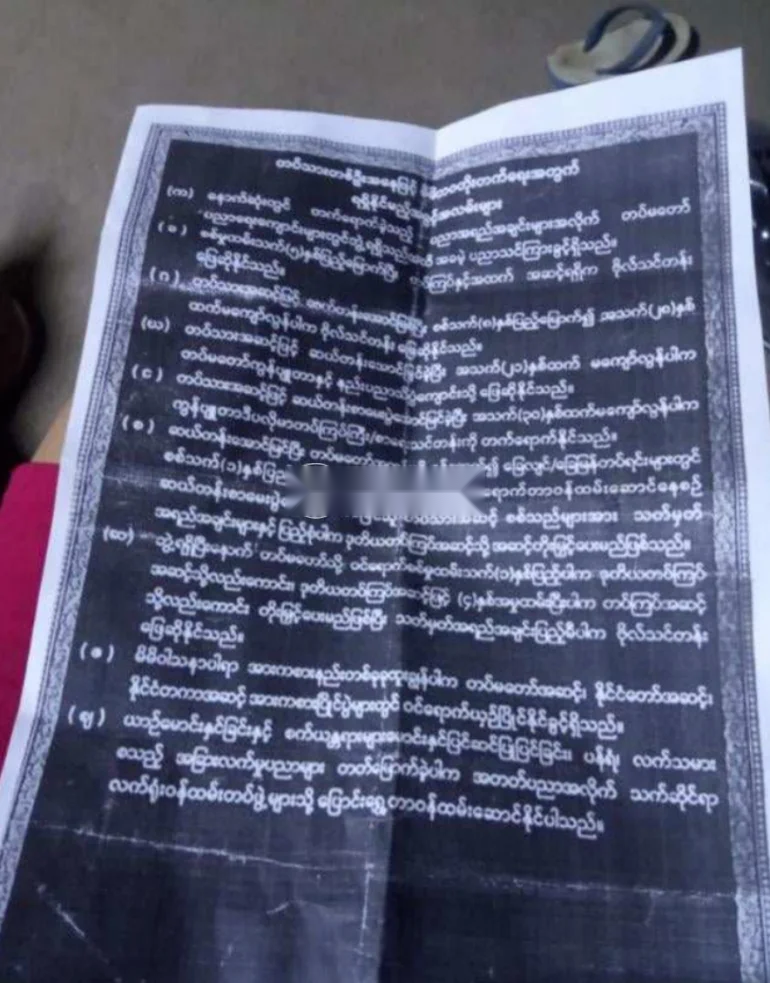 တပ်သားတစ်ဦးအနေဖြင့် ဘဝတိုးတက်ရေးအတွက်
ရရှိနိုင်မည့် အလမ်းများ
(က) နောက်ဆုံးတွင် တက်ရောက်ခဲ့သည့် ပညာအရည်အချင်းများအလိုက် တပ်မတော်
ပညာရေးကျောင်းများတွင် အခမဲ့ ပညာသင်ကြားခွင့်ရှိသည်။
(ခ) စစ်မှုထမ်းသက်(၅)နှစ်ပြည့်မြောက်ပြီး တပ်ကြပ်နှင့်အထက် အဆင့်ရရှိက ဗိုလ်သင်တန်း
ဖြေဆိုနိုင်သည်။
(ဂ) တပ်သားအဆင့်ဖြင့် စစ်သက်(၈)နှစ်ပြည့်မြောက်၍ အသက်(၂၈)နှစ်
ထက်မကျော်လွန်ပါက ဗိုလ်သင်တန်း ဖြေဆိုနိုင်သည်။
(ဃ) တပ်သားအဆင့်ဖြင့် ဆယ်တန်းအောင်မြင်ခဲ့ပြီး အသက်(၂၁)နှစ်ထက် မကျော်လွန်ပါက
တပ်မတော်ကွန်ပျူတာနှင့် နည်းပညာတက္ကသိုလ်ကျောင်းသို့ ဖြေဆိုနိုင်သည်။
(င) တပ်သားအဆင့်ဖြင့် ဆယ်တန်းစာမေးပွဲအောင်မြင်ခဲ့ပြီး အသက်(၃၀)နှစ်ထက်မကျော်လွန်ပါက
ကွန်ပျူတာဒီပလိုမာတပ်ကြပ်ကြီး/စာရေးသင်တန်းကို တက်ရောက်နိုင်သည်။
(စ) ဆယ်တန်းအောင်မြင်ပြီး တပ်မတော် ခြေလျင်/ခြေမြန်တပ်ရင်းများတွင်
စစ်သက်(၁)နှစ်ပြည့် တာဝန်ထမ်းဆောင်နေစဉ်
ဆယ်တန်းစာမေးပွဲ တပ်သားအဆင့် စစ်သည်များအား သတ်မှတ်
အရည်အချင်းများနှင့် ပြည့်စုံပါက ဒုတိယတပ်ကြပ်အဆင့်သို့ အဆင့်တိုးမြှင့်ပေးမည်ဖြစ်သည်။
(ဆ) ဘွဲ့ရရှိပြီးနောက် တပ်မတော်သို့ ဝင်ရောက်စစ်မှုထမ်းသက်(၁)နှစ်ပြည့်ပါက ဒုတိယတပ်ကြပ်
အဆင့်သို့လည်းကောင်း၊ ဒုတိယတပ်ကြပ်အဆင့်ဖြင့် (၄)နှစ်အမှုထမ်းပြီးပါက တပ်ကြပ်အဆင့်
သို့လည်းကောင်း တိုးမြှင့်ပေးမည်ဖြစ်ပြီး သတ်မှတ်အရည်အချင်းပြည့်မီပါက ဗိုလ်သင်တန်း
ဖြေဆိုနိုင်သည်။
(ဇ) မိမိဝါသနာပါရာ အားကစားနည်းတစ်ခုခုထူးချွန်ပါက တပ်မတော်အဆင့်၊ နိုင်ငံတော်အဆင့်၊
နိုင်ငံတကာအဆင့် အားကစားပြိုင်ပွဲများတွင် ဝင်ရောက်ယှဉ်ပြိုင်နိုင်ခွင့်ရှိသည်။
(ဈ) ယာဉ်မောင်းနှင်ခြင်းနှင့် စက်ယန္တရားများမောင်းနှင်ပြင်ဆင်ပြုပြင်ခြင်း၊ ပန်းရံ၊ လက်သမား
စသည့် အခြားလက်မှုပညာများ တတ်မြောက်ခဲ့ပါက အတတ်ပညာအလိုက် သက်ဆိုင်ရာ
လက်ရုံးဝန်ထမ်းတပ်ဖွဲ့များသို့ ပြောင်းရွှေ့တာဝန်ထမ်းဆောင်နိုင်ပါသည်။